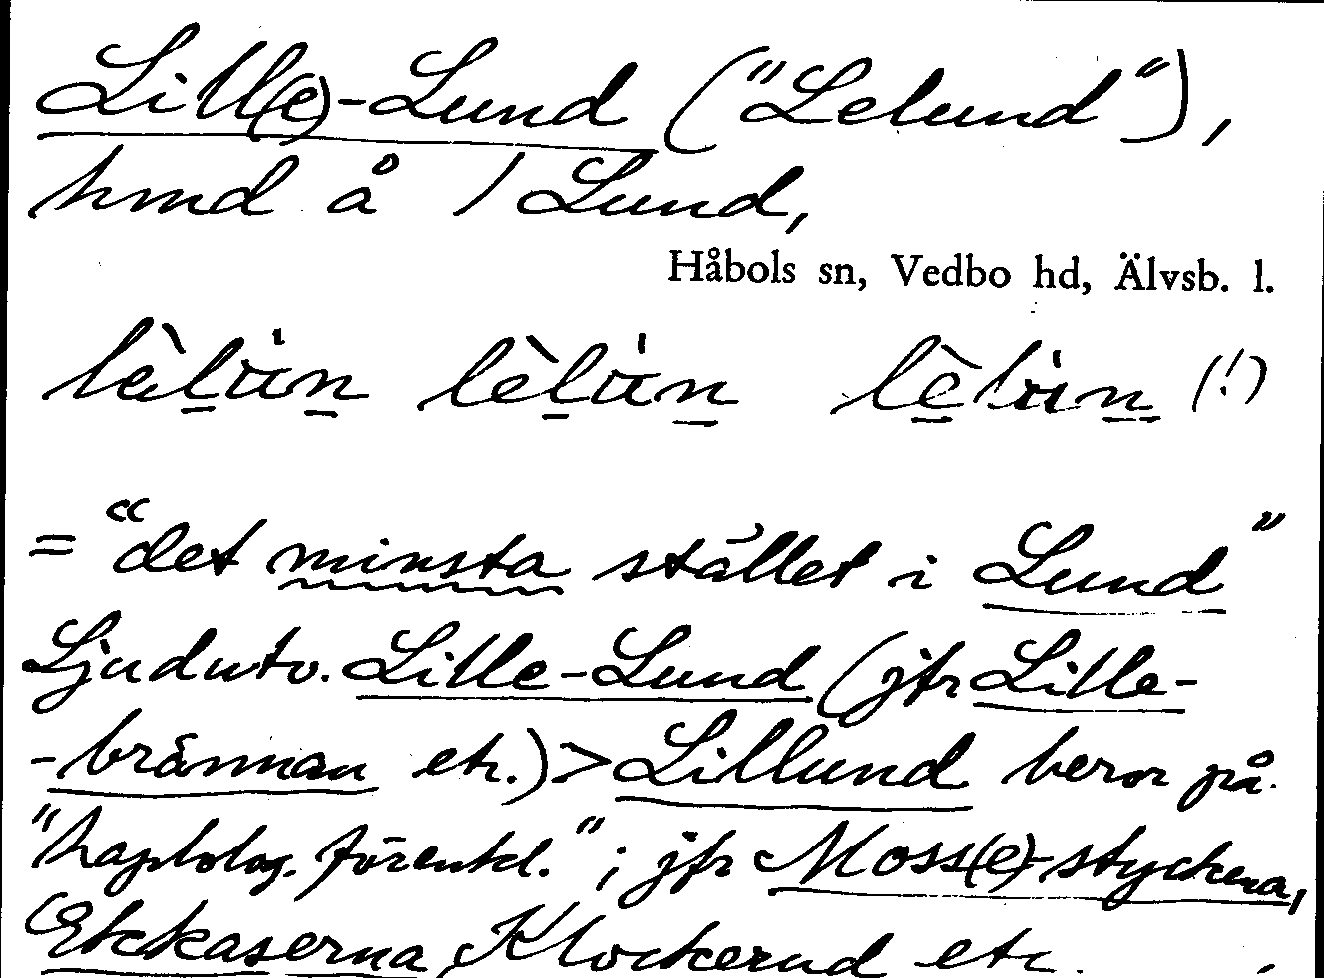 Lill(e)-Lund ("Lelund"),
hmd å 1 Lund,
Håbols sn, Vedbo hd, Älvsb. l.
lèlu̇n lèlu̇n lèlu̇n (!)
= "det minsta stället i Lund"
Ljudutv. Lille-Lund (jfr Lille-
-brännan etc.) > Lillund beror på
"haplolog. förenkl."; jfr Moss(e)-styckena,
Ekkaserna, Klockerud etc.